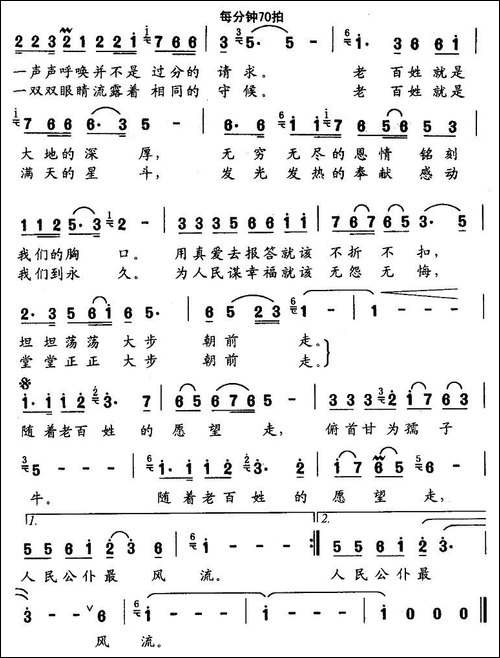 每分钟70拍
2 2 3 2 1 2 2 1 7 6 6 3 5· 5 0 1· 3 6 6 1
一声声呼唤并不是 过分的 请求。 老 百姓就是
一双双眼睛流露着 相同的 守候。 老 百姓就是
7 6 6 6· 3 5 — 6· 6 1 1 7 6 5 6 5 3
大地的深 厚， 无 穷 无尽的恩情 铭刻
满天的星 斗， 发 光 发热的奉献 感动
1 1 2 5 · 3 2 — 3 3 3 5 6 6 1 1 7 6 7 6 5 3· 5
我们的胸 口。 用真爱去报答就该 不折 不 扣，
我们到永 久。 为人民谋幸福就该 无怨 无 悔，
2· 3 5 6 1 6 5· 6 5 2 3 1 — 1 — — —
坦坦荡荡 大步 朝前 走。
堂堂正正 大步 朝前 走。
1· 1 1 2 3· 7 6 5 6 7 6 5 — 3 3 3 3 2 1 7 6
随着老百姓 的 愿 望 走， 俯首甘为孺 子
5 — — — 6 1· 1 1 2 3· 2 1 7 6 5 6 —
牛。 随着老百姓 的 愿 望 走，
1. 2.
5 5 6 1 2 3 6 1 — — 5 5 6 1 2 3·
人民公仆最 风 流。 人民公仆最
3 — — 6 1 — — — 1 — — — 1 0 0 0
风 流。